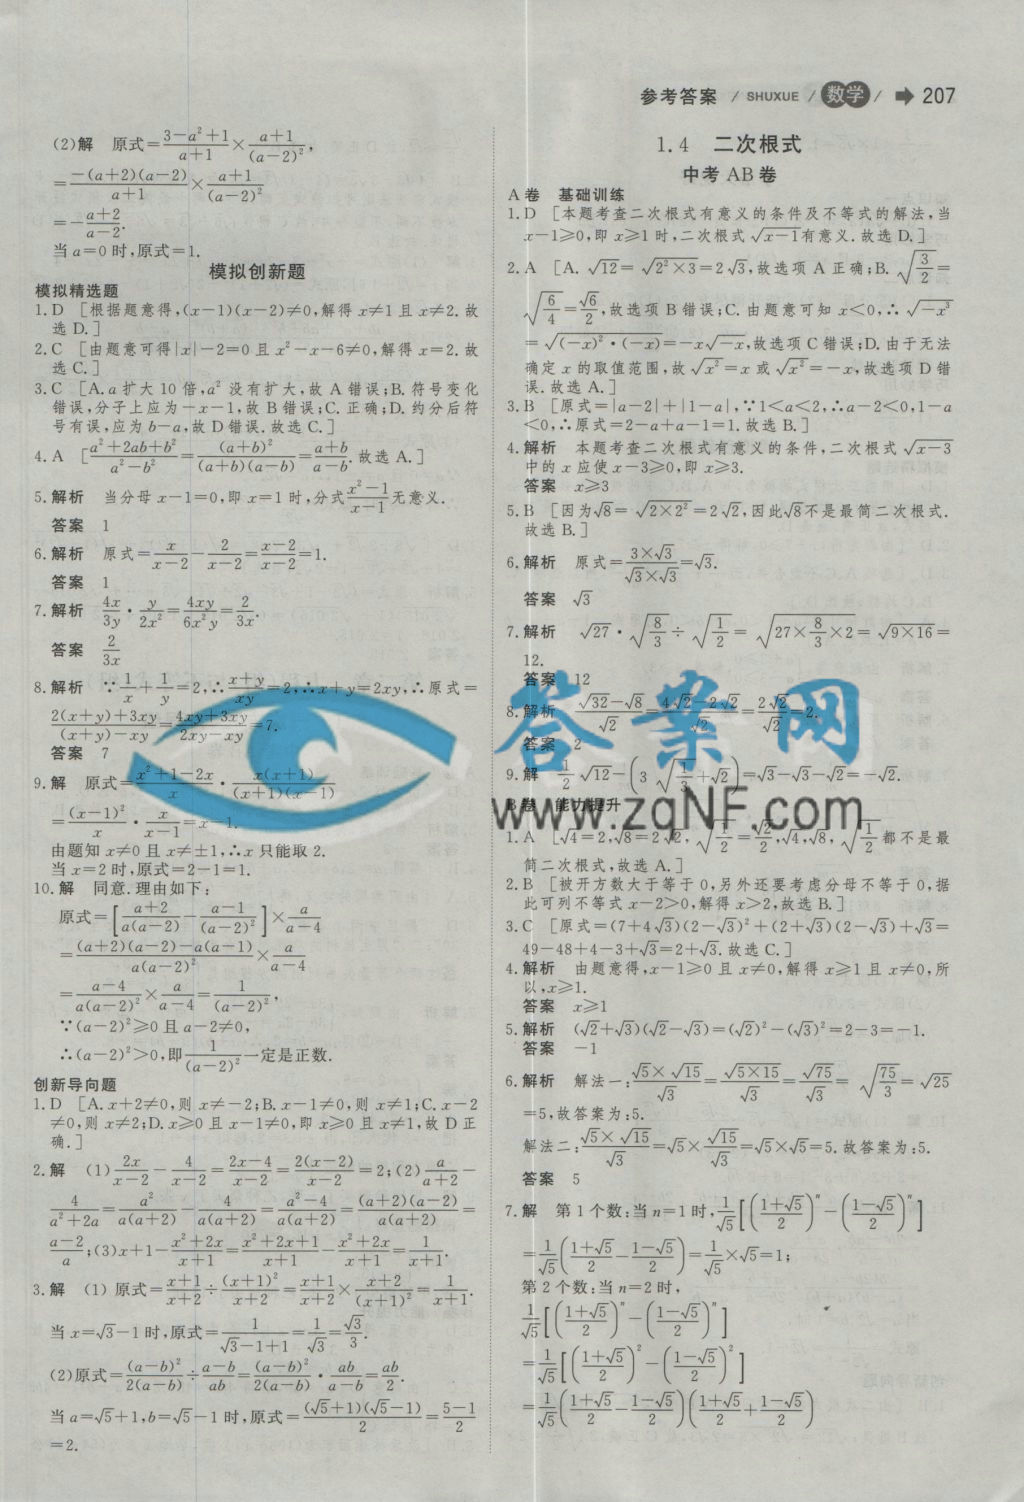 参考答案 / SHUXUE / 数学 / → 207
(2)解 原式=\frac{3-a²+1}{a+1}×\frac{a+1}{(a-2)²},
=\frac{-(a+2)(a-2)}{a+1}×\frac{a+1}{(a-2)²}
=-\frac{a+2}{a-2}.
当 a=0 时,原式=1.
模拟创新题
模拟精选题
1.D [根据题意得,(x-1)(x-2)≠0,解得 x≠1 且 x≠2.故
选 D.]
2.C [由题意可得|x|-2=0 且 x²-x-6≠0,解得 x=2.故
选 C.]
3.C [A.a 扩大 10 倍,a² 没有扩大,故 A 错误;B.符号变化
错误,分子上应为-x-1,故 B 错误;C.正确;D.约分后符
号有误,应为 b-a,故 D 错误.故选 C.]
4.A [\frac{a²+2ab+b²}{a²-b²}=\frac{(a+b)²}{(a+b)(a-b)}=\frac{a+b}{a-b}.故选 A.]
5.解析 当分母 x-1=0,即 x=1 时,分式\frac{x²-1}{x-1}无意义.
答案 1
6.解析 原式=\frac{x}{x-2}-\frac{2}{x-2}=\frac{x-2}{x-2}=1.
答案 1
7.解析 \frac{4x}{3y}·\frac{y}{2x²}=\frac{4xy}{6x²y}=\frac{2}{3x}.
答案 \frac{2}{3x}
8.解析 ∵\frac{1}{x}+\frac{1}{y}=2,∴\frac{x+y}{xy}=2,∴x+y=2xy,∴原式=
\frac{2(x+y)+3xy}{(x+y)-xy}=\frac{4xy+3xy}{2xy-xy}=7.
答案 7
9.解 原式=\frac{x²+1-2x}{x}·\frac{x(x+1)}{(x+1)(x-1)}
=\frac{(x-1)²}{x}·\frac{x}{x-1}=x-1.
由题知 x≠0 且 x≠±1,∴x 只能取 2.
当 x=2 时,原式=2-1=1.
10.解 同意.理由如下:
原式=[\frac{a+2}{a(a-2)}-\frac{a-1}{(a-2)²}]×\frac{a}{a-4}
=\frac{(a+2)(a-2)-a(a-1)}{a(a-2)²}×\frac{a}{a-4}
=\frac{a-4}{a(a-2)²}×\frac{a}{a-4}=\frac{1}{(a-2)²},
∵(a-2)²≥0 且 a-2≠0,
∴(a-2)²>0,即\frac{1}{(a-2)²}一定是正数.
创新导向题
1.D [A.x+2≠0,则 x≠-2;B.x-1≠0,则 x≠1;C.x-2
≠0,则 x≠2;D.x≥0 且 x-1≠0,即 x≥0 且 x≠1,故 D 正
确.]
2.解 (1)\frac{2x}{x-2}-\frac{4}{x-2}=\frac{2x-4}{x-2}=\frac{2(x-2)}{x-2}=2;(2)\frac{a}{a+2}-
\frac{4}{a²+2a}=\frac{a²}{a(a+2)}-\frac{4}{a(a+2)}=\frac{a²-4}{a(a+2)}=\frac{(a+2)(a-2)}{a(a+2)}=
\frac{a-2}{a};(3)x+1-\frac{x²+2x}{x+1}=\frac{x²+2x+1}{x+1}-\frac{x²+2x}{x+1}=\frac{1}{x+1}.
3.解 (1)原式=\frac{x+1}{x+2}÷\frac{(x+1)²}{x+2}=\frac{x+1}{x+2}×\frac{x+2}{(x+1)²}=\frac{1}{x+1}.
当 x=√3-1 时,原式=\frac{1}{√3-1+1}=\frac{1}{√3}=\frac{√3}{3}.
(2)原式=\frac{(a-b)²}{2(a-b)}÷\frac{a-b}{ab}=\frac{(a-b)²}{2(a-b)}·\frac{ab}{a-b}=\frac{ab}{2}.
当 a=√5+1,b=√5-1 时,原式=\frac{(√5+1)(√5-1)}{2}=\frac{5-1}{2}
=2.
1.4 二次根式
中考 AB 卷
A 卷 基础训练
1.D [本题考查二次根式有意义的条件及不等式的解法,当
x-1≥0,即 x≥1 时,二次根式 √(x-1) 有意义.故选 D.]
2.A [A.√12=√(2²×3)=2√3,故选项 A 正确;B.√\frac{3}{2}=
√\frac{6}{4}=\frac{√6}{2},故选项 B 错误;C.由题意可知 x<0,∴√(-x³)
=√((-x)²·(-x))=-x√(-x),故选项 C 错误;D.由于无法
确定 x 的取值范围,故√(x²)=x 或√(x²)=-x,故选项 D 错
误.故选 A.]
3.B [原式=|a-2|+|1-a|,∵1<a<2,∴a-2<0,1-a
<0,∴原式=2-a+a-1=1.故选 B.]
4.解析 本题考查二次根式有意义的条件,二次根式√(x-3)
中的 x 应使 x-3≥0,即 x≥3.
答案 x≥3
5.B [因为√8=√(2×2²)=2√2,因此√8不是最简二次根式.
故选 B.]
6.解析 原式=\frac{3×√3}{√3×√3}=√3.
答案 √3
7.解析 √27·√\frac{8}{3}÷√\frac{1}{2}=√(27×\frac{8}{3}×2)=√(9×16)=
12.
答案 12
8.解析 \frac{√32-√8}{√2}=\frac{4√2-2√2}{√2}=\frac{2√2}{√2}=2.
答案 2
9.解 \frac{1}{2}√12-(3√\frac{1}{3}+√2)=√3-√3-√2=-√2.
B 卷 能力提升
1.A [√4=2,√8=2√2,√\frac{1}{2}=\frac{√2}{2},√4,√8,√\frac{1}{2}都不是最
简二次根式,故选 A.]
2.B [被开方数大于等于 0,另外还要考虑分母不等于 0,据
此可列不等式 x-2>0,解得 x>2,故选 B.]
3.C [原式=(7+4√3)(2-√3)²+(2+√3)(2-√3)+√3=
49-48+4-3+√3=2+√3.故选 C.]
4.解析 由题意得,x-1≥0 且 x≠0,解得 x≥1 且 x≠0,所
以,x≥1.
答案 x≥1
5.解析 (√2+√3)(√2-√3)=(√2)²-(√3)²=2-3=-1.
答案 -1
6.解析 解法一:\frac{√5×√15}{√3}=\frac{√(5×15)}{√3}=\frac{√75}{√3}=√\frac{75}{3}=√25
=5,故答案为:5.
解法二:\frac{√5×√15}{√3}=√5×\frac{√15}{√3}=√5×√5=5.故答案为:5.
答案 5
7.解 第 1 个数:当 n=1 时,\frac{1}{√5}[(\frac{1+√5}{2})ⁿ-(\frac{1-√5}{2})ⁿ]
=\frac{1}{√5}(\frac{1+√5}{2}-\frac{1-√5}{2})=\frac{1}{√5}×√5=1;
第 2 个数:当 n=2 时,
\frac{1}{√5}[(\frac{1+√5}{2})ⁿ-(\frac{1-√5}{2})ⁿ]
=\frac{1}{√5}[(\frac{1+√5}{2})²-(\frac{1-√5}{2})²]
=\frac{1}{√5}(\frac{1+√5}{2}-\frac{1-√5}{2})(\frac{1+√5}{2}+\frac{1-√5}{2})
答案网
www.zqNF.com